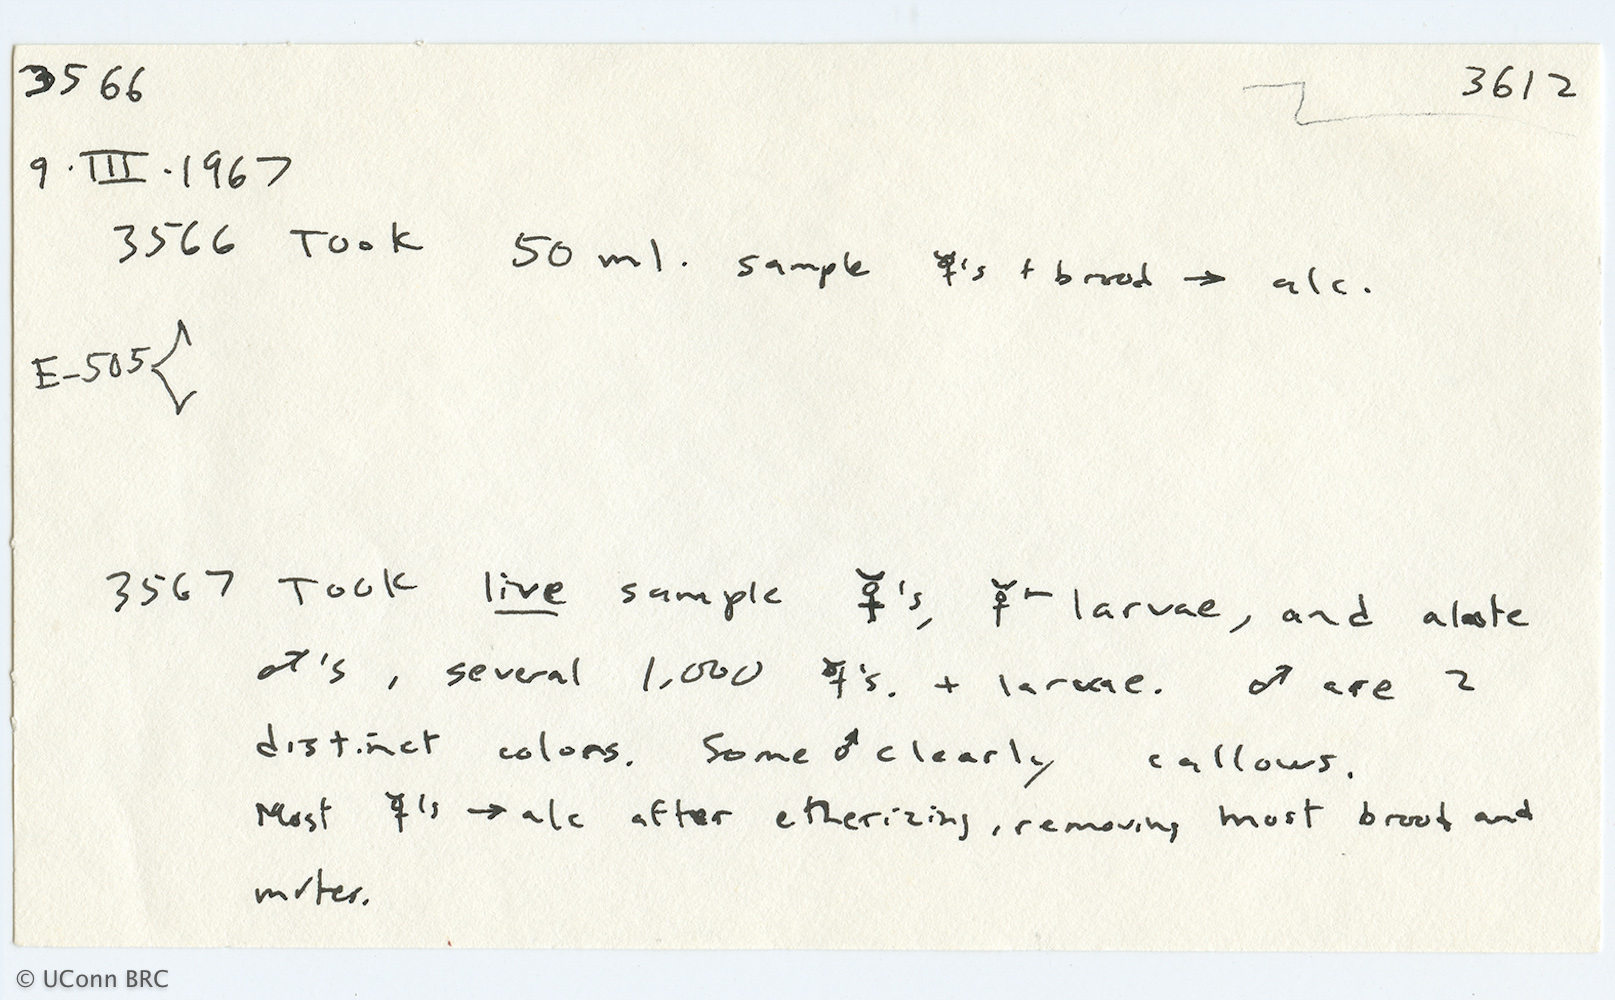 3566 3612
9·III·1967
3566 Took 50 ml. sample ☿'s + brood → alc.
E-505 {
3567 Took live sample ☿'s, ☿- larvae, and alate
♂'s, several 1,000 ☿'s. + larvae. ♂ are 2
distinct colors. Some ♂ clearly callows.
Most ☿'s → alc after etherizing, removing most brood and
mites.
© UConn BRC